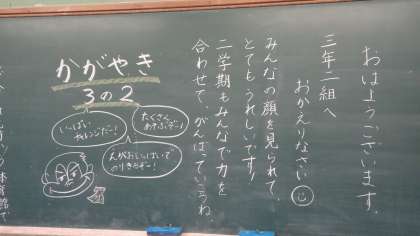 おはようございます。
三年二組へ
おかえりなさい
みんなの顔を見られて、
とてもうれしいです!
二学期もみんなで力を
合わせて、がんばっていこうね
かがやき
3の2
たくさん
あそぶぞー!
いっぱい
チャレンジだー!
えがおいっぱいで
のりきるぞー!